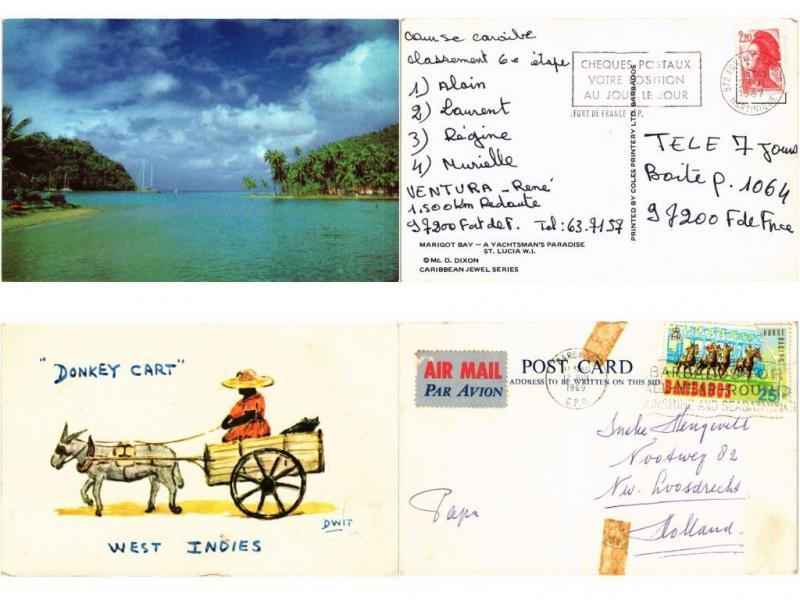 course caraibe
classement 6e étape
1) Alain
2) Laurent
3) Régine
4) Murielle
VENTURA - René
1,500Km Redoute
97200 Fort de F. Tel: 63.71.57
MARIGOT BAY – A YACHTSMAN'S PARADISE
ST. LUCIA W.I.
© Mc. D. DIXON
CARIBBEAN JEWEL SERIES
PRINTED BY COLES PRINTERY LTD. BARBADOS
CHEQUES POSTAUX
VOTRE POSITION
AU JOUR LE JOUR
FORT DE FRANCE
2,20
972
1987
MARTINIQUE
TELE 7 Jours
Boite p. 1064
97200 F de Fnce
"DONKEY CART"
DWIT
WEST INDIES
AIR MAIL
PAR AVION
POST CARD
ADDRESS TO BE WRITTEN ON THIS SIDE
BARBADOS
1969
G.P.O.
HORSE
RACING
BARBADOS
25
BARBADOS FOR
ALL YEAR ROUND
SUNSHINE AND SEABATHING
Ineke Stengevelt
Nootweg 82
Nw. Loosdrecht.
Holland.
Papa